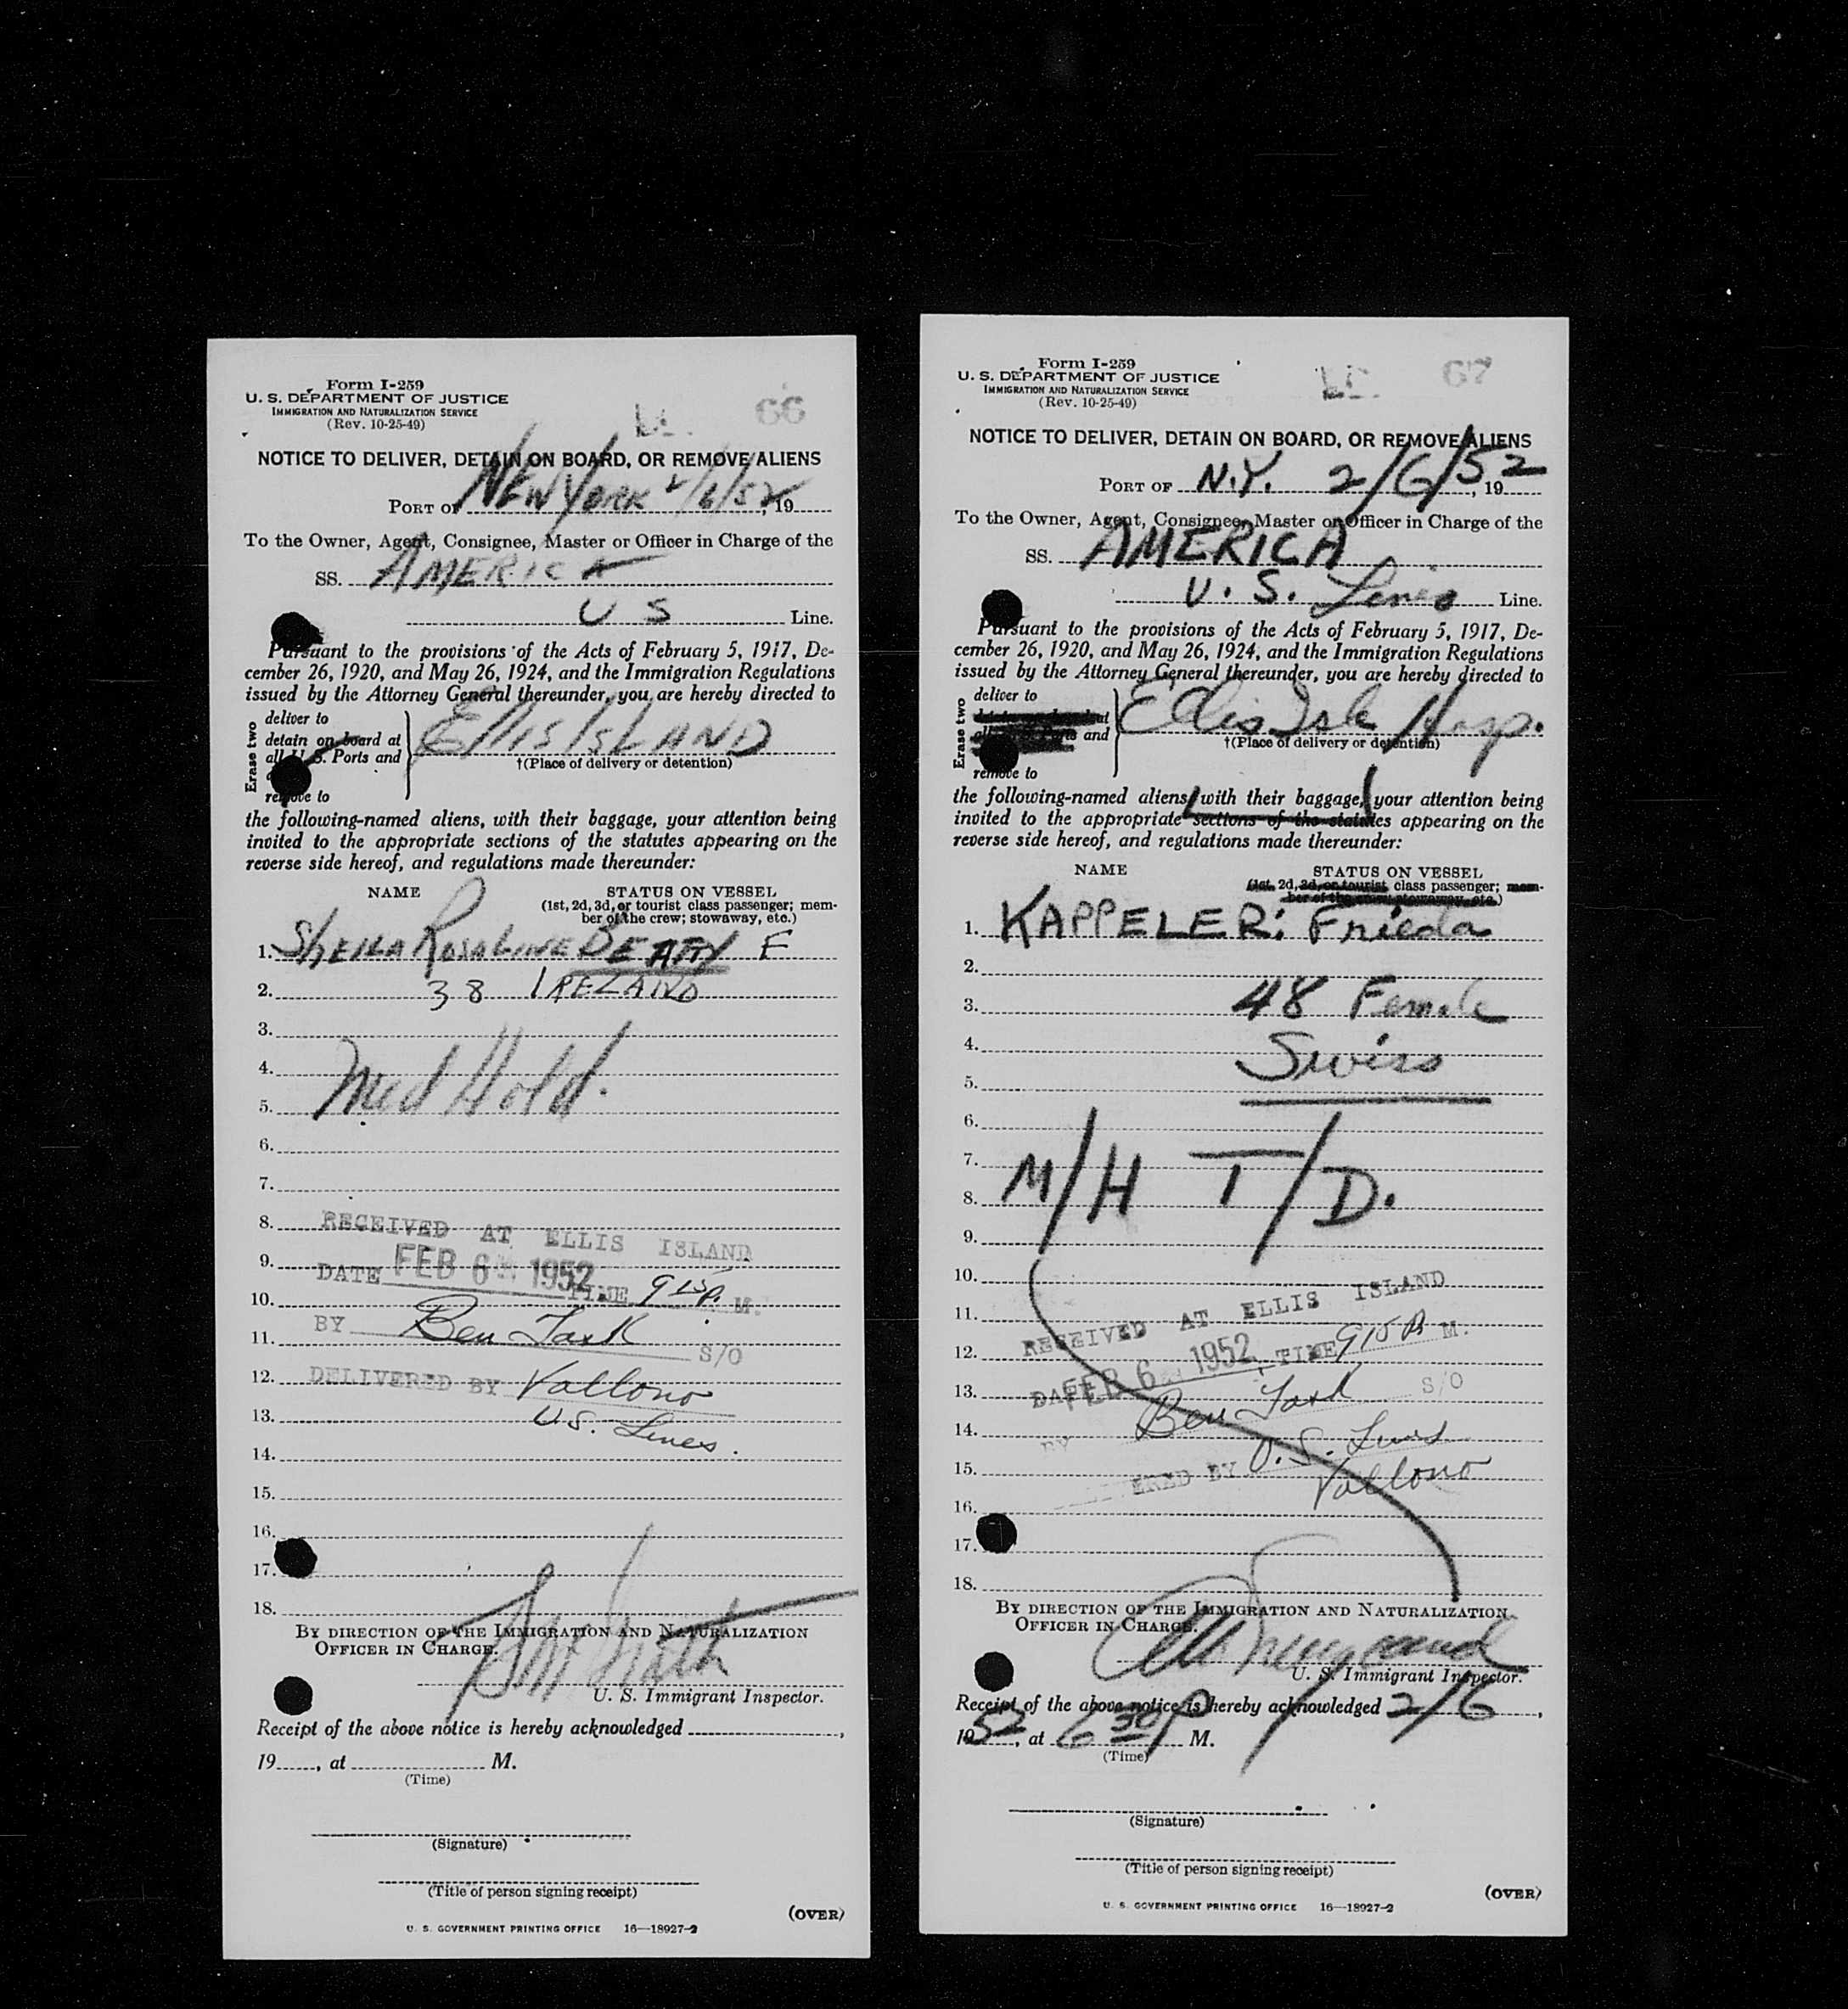 Form I-259
U. S. DEPARTMENT OF JUSTICE
IMMIGRATION AND NATURALIZATION SERVICE
(Rev. 10-25-49)
66
NOTICE TO DELIVER, DETAIN ON BOARD, OR REMOVE ALIENS
PORT OF NEW YORK 2/6/52, 19
To the Owner, Agent, Consignee, Master or Officer in Charge of the
SS. AMERICA
U S Line.
Pursuant to the provisions of the Acts of February 5, 1917, De-
cember 26, 1920, and May 26, 1924, and the Immigration Regulations
issued by the Attorney General thereunder, you are hereby directed to
Erase two
deliver to
detain on board at
all U. S. Ports and
remove to
ELLIS ISLAND
†(Place of delivery or detention)
the following-named aliens, with their baggage, your attention being
invited to the appropriate sections of the statutes appearing on the
reverse side hereof, and regulations made thereunder:
NAME STATUS ON VESSEL
(1st, 2d, 3d, or tourist class passenger; mem-
ber of the crew; stowaway, etc.)
1. SHEILA ROSALINE BEATTY F
2. 38 IRELAND
3.
4. Med Hold.
5.
6.
7.
8. RECEIVED AT ELLIS ISLAND
9. DATE FEB 6 1952 TIME 915 P. M.
10.
11. BY Ben Task S/O
12. DELIVERED BY Vallono
13. U.S. Lines.
14.
15.
16.
17.
18.
BY DIRECTION OF THE IMMIGRATION AND NATURALIZATION
OFFICER IN CHARGE.
U. S. Immigrant Inspector.
Receipt of the above notice is hereby acknowledged ,
19 , at M.
(Time)
(Signature)
(Title of person signing receipt)
(OVER)
U. S. GOVERNMENT PRINTING OFFICE 16—18927-2
Form I-259
U. S. DEPARTMENT OF JUSTICE
IMMIGRATION AND NATURALIZATION SERVICE
(Rev. 10-25-49)
67
NOTICE TO DELIVER, DETAIN ON BOARD, OR REMOVE ALIENS
PORT OF N.Y. 2/6/52, 19
To the Owner, Agent, Consignee, Master or Officer in Charge of the
SS. AMERICA
U. S. Lines Line.
Pursuant to the provisions of the Acts of February 5, 1917, De-
cember 26, 1920, and May 26, 1924, and the Immigration Regulations
issued by the Attorney General thereunder, you are hereby directed to
Erase two
deliver to
and
remove to
Ellis Isle Hosp.
†(Place of delivery or detention)
the following-named aliens, with their baggage, your attention being
invited to the appropriate sections of the statutes appearing on the
reverse side hereof, and regulations made thereunder:
NAME STATUS ON VESSEL
(1st, 2d, 3d, or tourist class passenger; mem-
ber of the crew; stowaway, etc.)
1. KAPPELER: Frieda
2.
3. 48 Female
4. Swiss
5.
6.
7.
8. M/H T/D.
9.
10.
11. RECEIVED AT ELLIS ISLAND
12. DATE FEB 6 1952 TIME 915 P M.
13. BY Ben Task S/O
14. U. S. Lines
15. ERED BY Vallono
16.
17.
18.
BY DIRECTION OF THE IMMIGRATION AND NATURALIZATION
OFFICER IN CHARGE.
U. S. Immigrant Inspector.
Receipt of the above notice is hereby acknowledged 2/6,
1952, at 6 30 P M.
(Time)
(Signature)
(Title of person signing receipt)
(OVER)
U. S. GOVERNMENT PRINTING OFFICE 16—18927-2